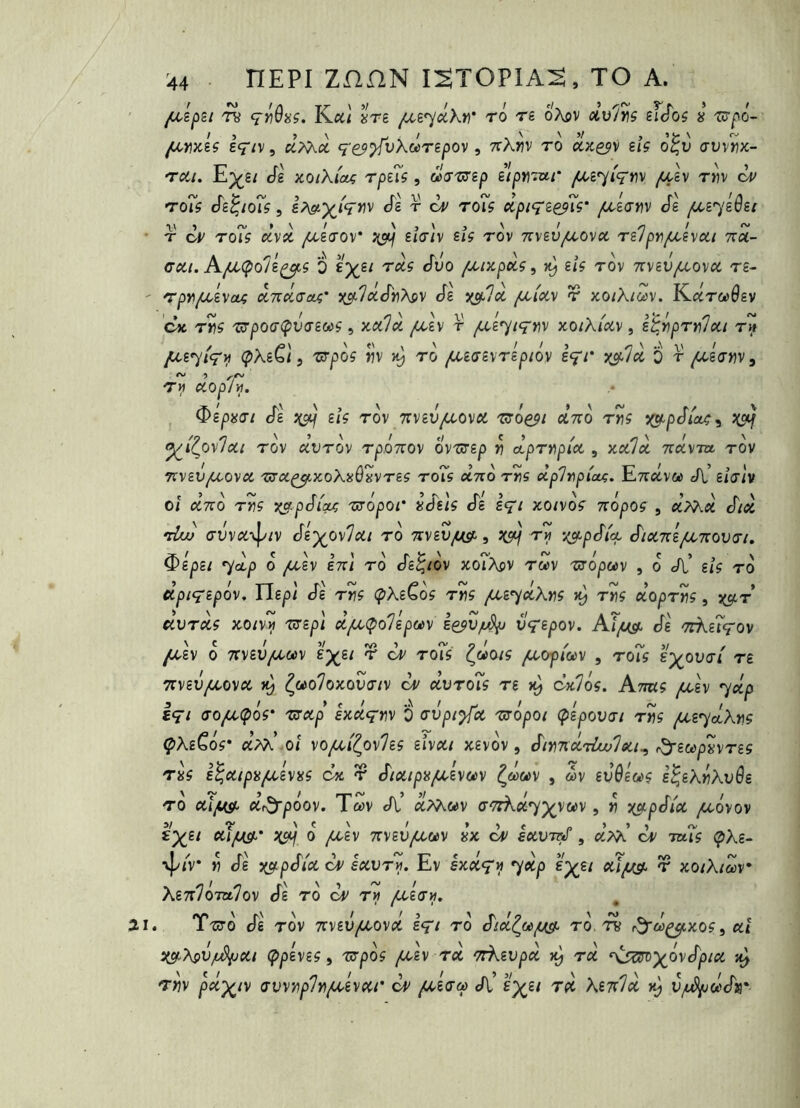 44 ΠΕΡΙ ΖΩΩΝ ΙΣΤΟΡΙΑΣ, ΤΟ Α.
μέρει τῦ ϛήθȣς. Καὶ ȣτε μεγάλη· τό τε ὅλον ἀυτῆς εἶδος ȣ πρό-
μηκές ἐϛιν, ἀλλὰ ϛρογγυλώτερον, πλὴν τὸ ἄκρον εἰς ὀξὺ συνῆκ-
ται. Ἔχει δὲ κοιλίας τρεῖς, ὥσπερ εἴρηται· μεγίϛην μὲν τὴν ἐν
τοῖς δεξιοῖς, ἐλαχίϛην δὲ τ̀ ἐν τοῖς ἀριϛεροῖς· μέσην δὲ μεγέθει
τ̀ ἐν τοῖς ἀνὰ μέσον· καὶ εἰσὶν εἰς τὸν πνεύμονα τετρημέναι πᾶ-
σαι. Ἀμφοτέρας δ̀ ἔχει τὰς δύο μικρὰς, κ̀ εἰς τὸν πνεύμονα τε-
τρημένας ἁπάσας· κατάδηλον δὲ κατὰ μίαν τ̃ κοιλιῶν. Κάτωθεν
ἐκ τῆς προσφύσεως, κατὰ μὲν τ̀ μεγίϛην κοιλίαν, ἐξήρτηται τῇ
μεγίϛῃ φλεβὶ, πρὸς ἣν κ̀ τὸ μεσεντέριόν ἐϛι· κατὰ δ̀ τ̀ μέσην,
τῇ ἀορτῇ.
Φέρȣσι δὲ καὶ εἰς τὸν πνεύμονα πόροι ἀπὸ τῆς καρδίας, καὶ
σχίζονται τὸν ἀυτὸν τρόπον ὅνπερ ἡ ἀρτηρία, κατὰ πάντα τὸν
πνεύμονα παρακολȣθȣντες τοῖς ἀπὸ τῆς ἀρτηρίας. Ἐπάνω δ' εἰσὶν
οἱ ἀπὸ τῆς καρδίας πόροι· ȣδεὶς δέ ἐϛι κοινὸς πόρος, ἀλλὰ διὰ
τὴν σύναψιν δέχονται τὸ πνεῦμα, καὶ τῇ καρδίᾳ διαπέμπουσι.
Φέρει γὰρ ὁ μὲν ἐπὶ τὸ δεξιὸν κοῖλον τῶν πόρων, ὁ δ' εἰς τὸ
ἀριϛερόν. Περὶ δὲ τῆς φλεβὸς τῆς μεγάλης κ̀ τῆς ἀορτῆς, κατ'
ἀυτὰς κοινῇ περὶ ἀμφοτέρων ἐροῦμεν ὕϛερον. Αἷμα δὲ πλεῖϛον
μὲν ὁ πνεύμων ἔχει τ̃ ἐν τοῖς ζώοις μορίων, τοῖς ἔχουσί τε
πνεύμονα κ̀ ζωοτοκοῦσιν ἐν ἀυτοῖς τε κ̀ ἐκτός. Ἅπας μὲν γάρ
ἐϛι σομφός· παρ' ἑκάϛην δ̀ σύριγγα πόροι φέρουσι τῆς μεγάλης
φλεβός· ἀλλ' οἱ νομίζοντες εἶναι κενὸν, διηπάτηνται, θεωρȣντες
τȣς ἐξαιρȣμένȣς ἐκ τ̃ διαιρȣμένων ζώων, ὧν εὐθέως ἐξελήλυθε
τὸ αἷμα ἀθρόον. Τῶν δ' ἄλλων σπλάγχνων, ἡ καρδία μόνον
ἔχει αἷμα· καὶ ὁ μὲν πνεύμων ȣκ ἐν ἑαυτῷ, ἀλλ' ἐν ταῖς φλε-
ψίν· ἡ δὲ καρδία ἐν ἑαυτῇ. Ἐν ἑκάϛῃ γὰρ ἔχει αἷμα τ̃ κοιλιῶν·
λεπτότατον δὲ τὸ ἐν τῇ μέσῃ.
21. Ὑπὸ δὲ τὸν πνεύμονά ἐϛι τὸ διάζωμα τὸ τῦ θώρακος, αἱ
καλούμεναι φρένες, πρὸς μὲν τὰ πλευρὰ κ̀ τὰ ὑποχόνδρια κ̀
τὴν ῥάχιν συνηρτημέναι· ἐν μέσῳ δ' ἔχει τὰ λεπτὰ κ̀ ὑμενώδη·